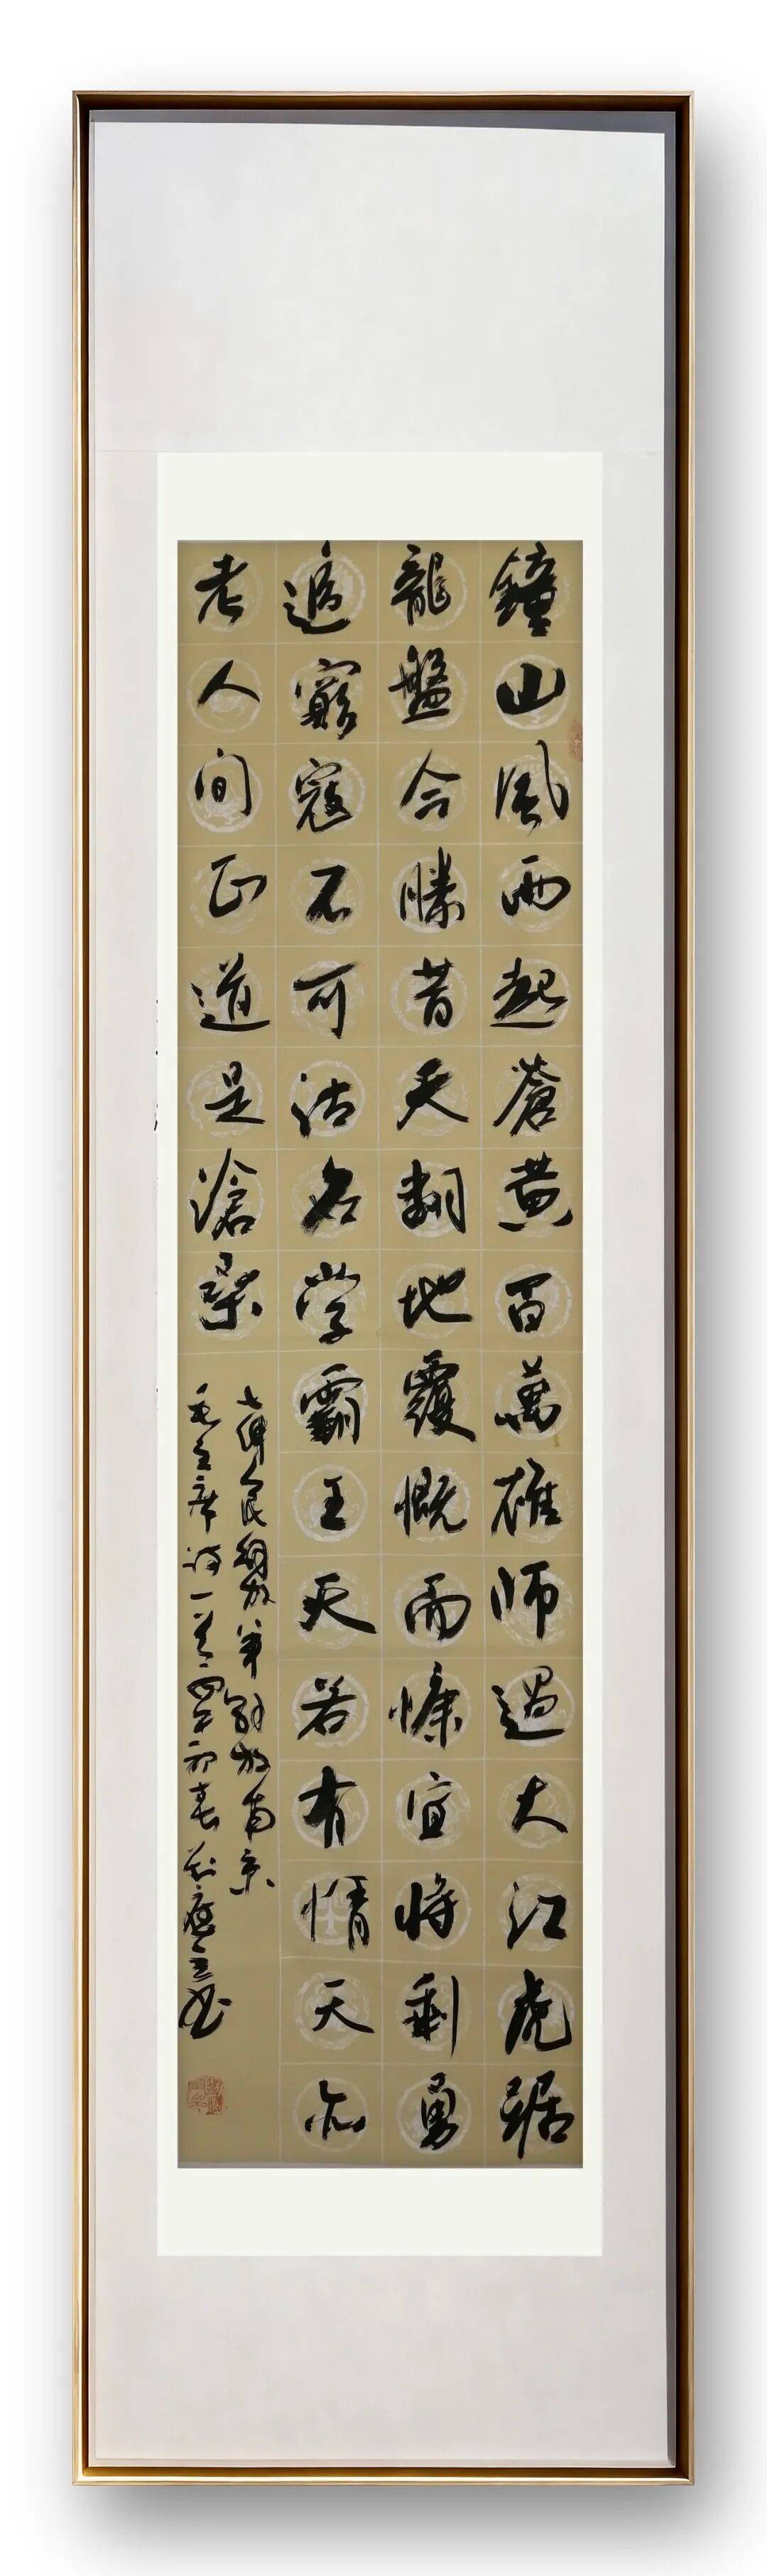 鐘山風雨起蒼黃百萬雄師過大江虎踞
龍盤今勝昔天翻地覆慨而慷宜將剩勇
追窮寇不可沽名学霸王天若有情天亦
老人間正道是滄桑
七律人民解放軍解放南京
毛主席詩一首年初春书